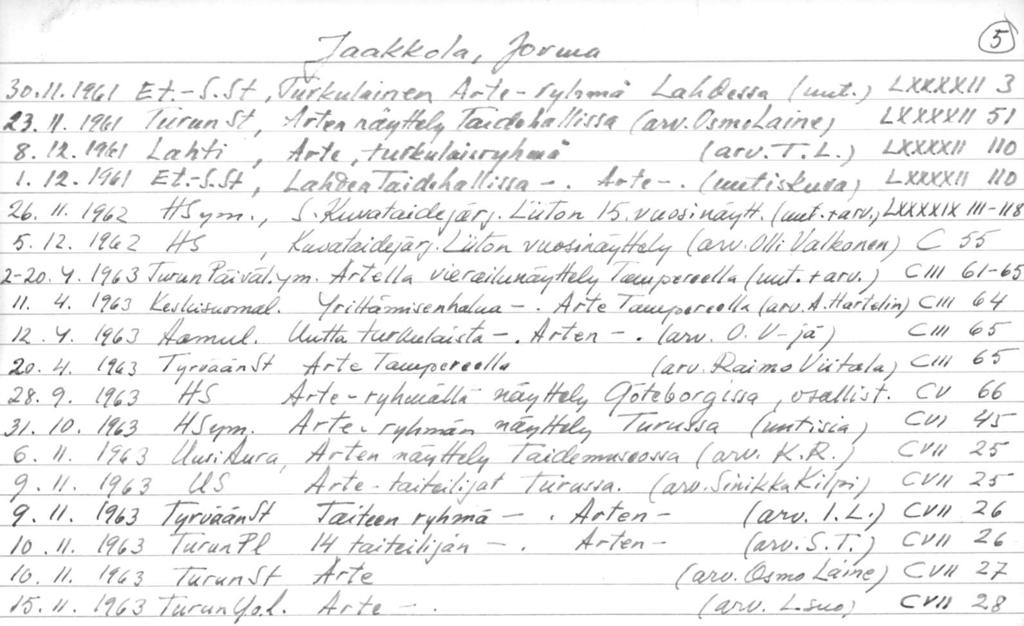 5
Jaakkola, Jorma
30.11.1961 Et.-S.St, Turkulainen Arte-ryhmä Lahdessa (uut.) LXXXXII 3
23.11.1961 Turun St, Arten näyttely Taidehallissa (arv. Osmo Laine) LXXXXII 51
8.12.1961 Lahti, Arte, turkulaisryhmä (arv. T.L.) LXXXXII 110
1.12.1961 Et.-S.St, Lahden Taidehallissa -. Arte -. (uutiskuva) LXXXXII 110
26.11.1962 HS ym., S. Kuvataidejärj. Liiton 15. vuosinäytt. (uut.+arv.) LXXXXIX 111-118
5.12.1962 HS Kuvataidejärj. Liiton vuosinäyttely (arv. Olli Valkonen) C 55
2-20.4.1963 Turun Päiväl. ym. Artella vierailunäyttely Tampereella (uut.+arv.) CIII 61-65
11.4.1963 Keskisuomal. Yrittämisenhalua -. Arte Tampereella (arv. A. Hartelin) CIII 64
12.4.1963 Aamul. Uutta turkulaista -. Arten -. (arv. O. V-jä) CIII 65
20.4.1963 Tyrvään St Arte Tampereella (arv. Raimo Viitala) CIII 65
28.9.1963 HS Arte-ryhmällä näyttely Göteborgissa, osallist. CV 66
31.10.1963 HS ym. Arte-ryhmän näyttely Turussa (uutisia) CVI 45
6.11.1963 Uusi Aura, Arten näyttely Taidemuseossa (arv. K.R.) CVII 25
9.11.1963 US Arte-taiteilijat Turussa. (arv. Sinikka Kilpi) CVII 25
9.11.1963 Tyrvään St Taiteen ryhmä -. Arten - (arv. I.L.) CVII 26
10.11.1963 Turun Pl 14 taiteilijan -. Arten - (arv. S.T.) CVII 26
10.11.1963 Turun St Arte (arv. Osmo Laine) CVII 27
15.11.1963 Turun Yo.l. Arte -. (arv. L.suo) CVII 28